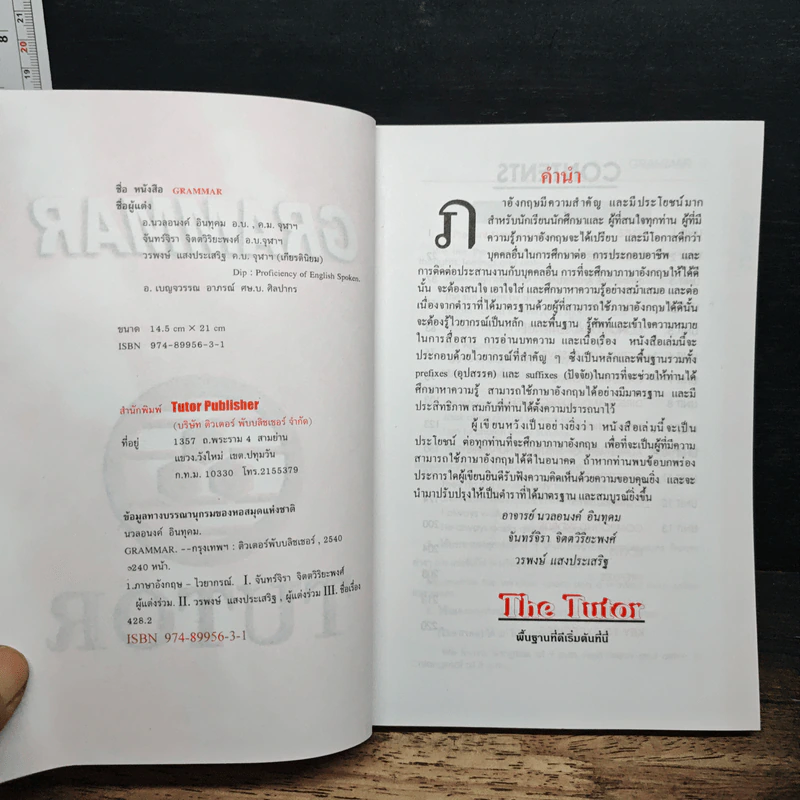 ชื่อ หนังสือ GRAMMAR
ชื่อผู้แต่ง
อ.นวลอนงค์ อินทุคม อ.บ. , ค.ม. จุฬาฯ
จันทร์จิรา จิตตวิริยะพงศ์ อ.บ.จุฬาฯ
วรพงษ์ แสงประเสริฐ ค.บ. จุฬาฯ (เกียรตินิยม)
Dip : Proficiency of English Spoken.
อ. เบญจวรรณ อาภรณ์ ศษ.บ. ศิลปากร
ขนาด 14.5 cm × 21 cm
ISBN 974-89956-3-1
สำนักพิมพ์ Tutor Publisher
(บริษัท ติวเตอร์ พับบลิชเชอร์ จำกัด)
ที่อยู่ 1357 ถ.พระราม 4 สามย่าน
แขวง.วังใหม่ เขต.ปทุมวัน
ก.ท.ม. 10330 โทร.2155379
ข้อมูลทางบรรณานุกรมของหอสมุดแห่งชาติ
นวลอนงค์ อินทุคม.
GRAMMAR. --กรุงเทพฯ : ติวเตอร์พับบลิชเชอร์ , 2540
240 หน้า.
1.ภาษาอังกฤษ - ไวยากรณ์. I. จันทร์จิรา จิตตวิริยะพงศ์
ผู้แต่งร่วม. II. วรพงษ์ แสงประเสริฐ , ผู้แต่งร่วม III. ชื่อเรื่อง
428.2
ISBN 974-89956-3-1
คำนำ
ภาอังกฤษมีความสำคัญ และมีประโยชน์มาก
สำหรับนักเรียนนักศึกษาและ ผู้ที่สนใจทุกท่าน ผู้ที่มี
ความรู้ภาษาอังกฤษจะได้เปรียบ และมีโอกาสดีกว่า
บุคคลอื่นในการศึกษาต่อ การประกอบอาชีพ และ
การติดต่อประสานงานกับบุคคลอื่น การที่จะศึกษาภาษาอังกฤษให้ได้ดี
นั้น จะต้องสนใจ เอาใจใส่ และศึกษาหาความรู้อย่างสม่ำเสมอ และต่อ
เนื่องจากตำราที่ได้มาตรฐานด้วยผู้ที่สามารถใช้ภาษาอังกฤษได้ดีนั้น
จะต้องรู้ไวยากรณ์เป็นหลัก และพื้นฐาน รู้ศัพท์และเข้าใจความหมาย
ในการสื่อสาร การอ่านบทความ และเนื้อเรื่อง หนังสือเล่มนี้จะ
ประกอบด้วยไวยากรณ์ที่สำคัญ ๆ ซึ่งเป็นหลักและพื้นฐานรวมทั้ง
prefixes (อุปสรรค) และ suffixes (ปัจจัย)ในการที่จะช่วยให้ท่านได้
ศึกษาหาความรู้ สามารถใช้ภาษาอังกฤษได้อย่างมีมาตรฐาน และมี
ประสิทธิภาพ สมกับที่ท่านได้ตั้งความปรารถนาไว้
ผู้เขียนหวังเป็นอย่างยิ่งว่า หนังสือเล่มนี้จะเป็น
ประโยชน์ ต่อทุกท่านที่จะศึกษาภาษาอังกฤษ เพื่อที่จะเป็นผู้ที่มีความ
สามารถใช้ภาษาอังกฤษได้ดีในอนาคต ถ้าหากท่านพบข้อบกพร่อง
ประการใดผู้เขียนยินดีรับฟังความคิดเห็นด้วยความขอบคุณยิ่ง และจะ
นำมาปรับปรุงให้เป็นตำราที่ได้มาตรฐาน และสมบูรณ์ยิ่งขึ้น
อาจารย์ นวลอนงค์ อินทุคม
จันทร์จิรา จิตตวิริยะพงศ์
วรพงษ์ แสงประเสริฐ
The Tutor
พื้นฐานที่ดีเริ่มต้นที่นี่